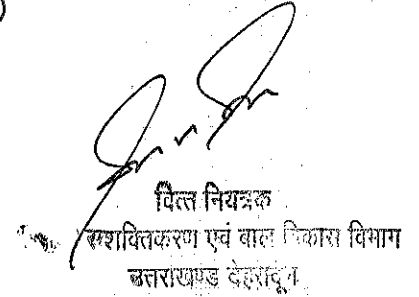 वित्त नियत्रक
सशक्तिकरण एवं बाल विकास विभाग
उत्तराखण्ड देहरादून